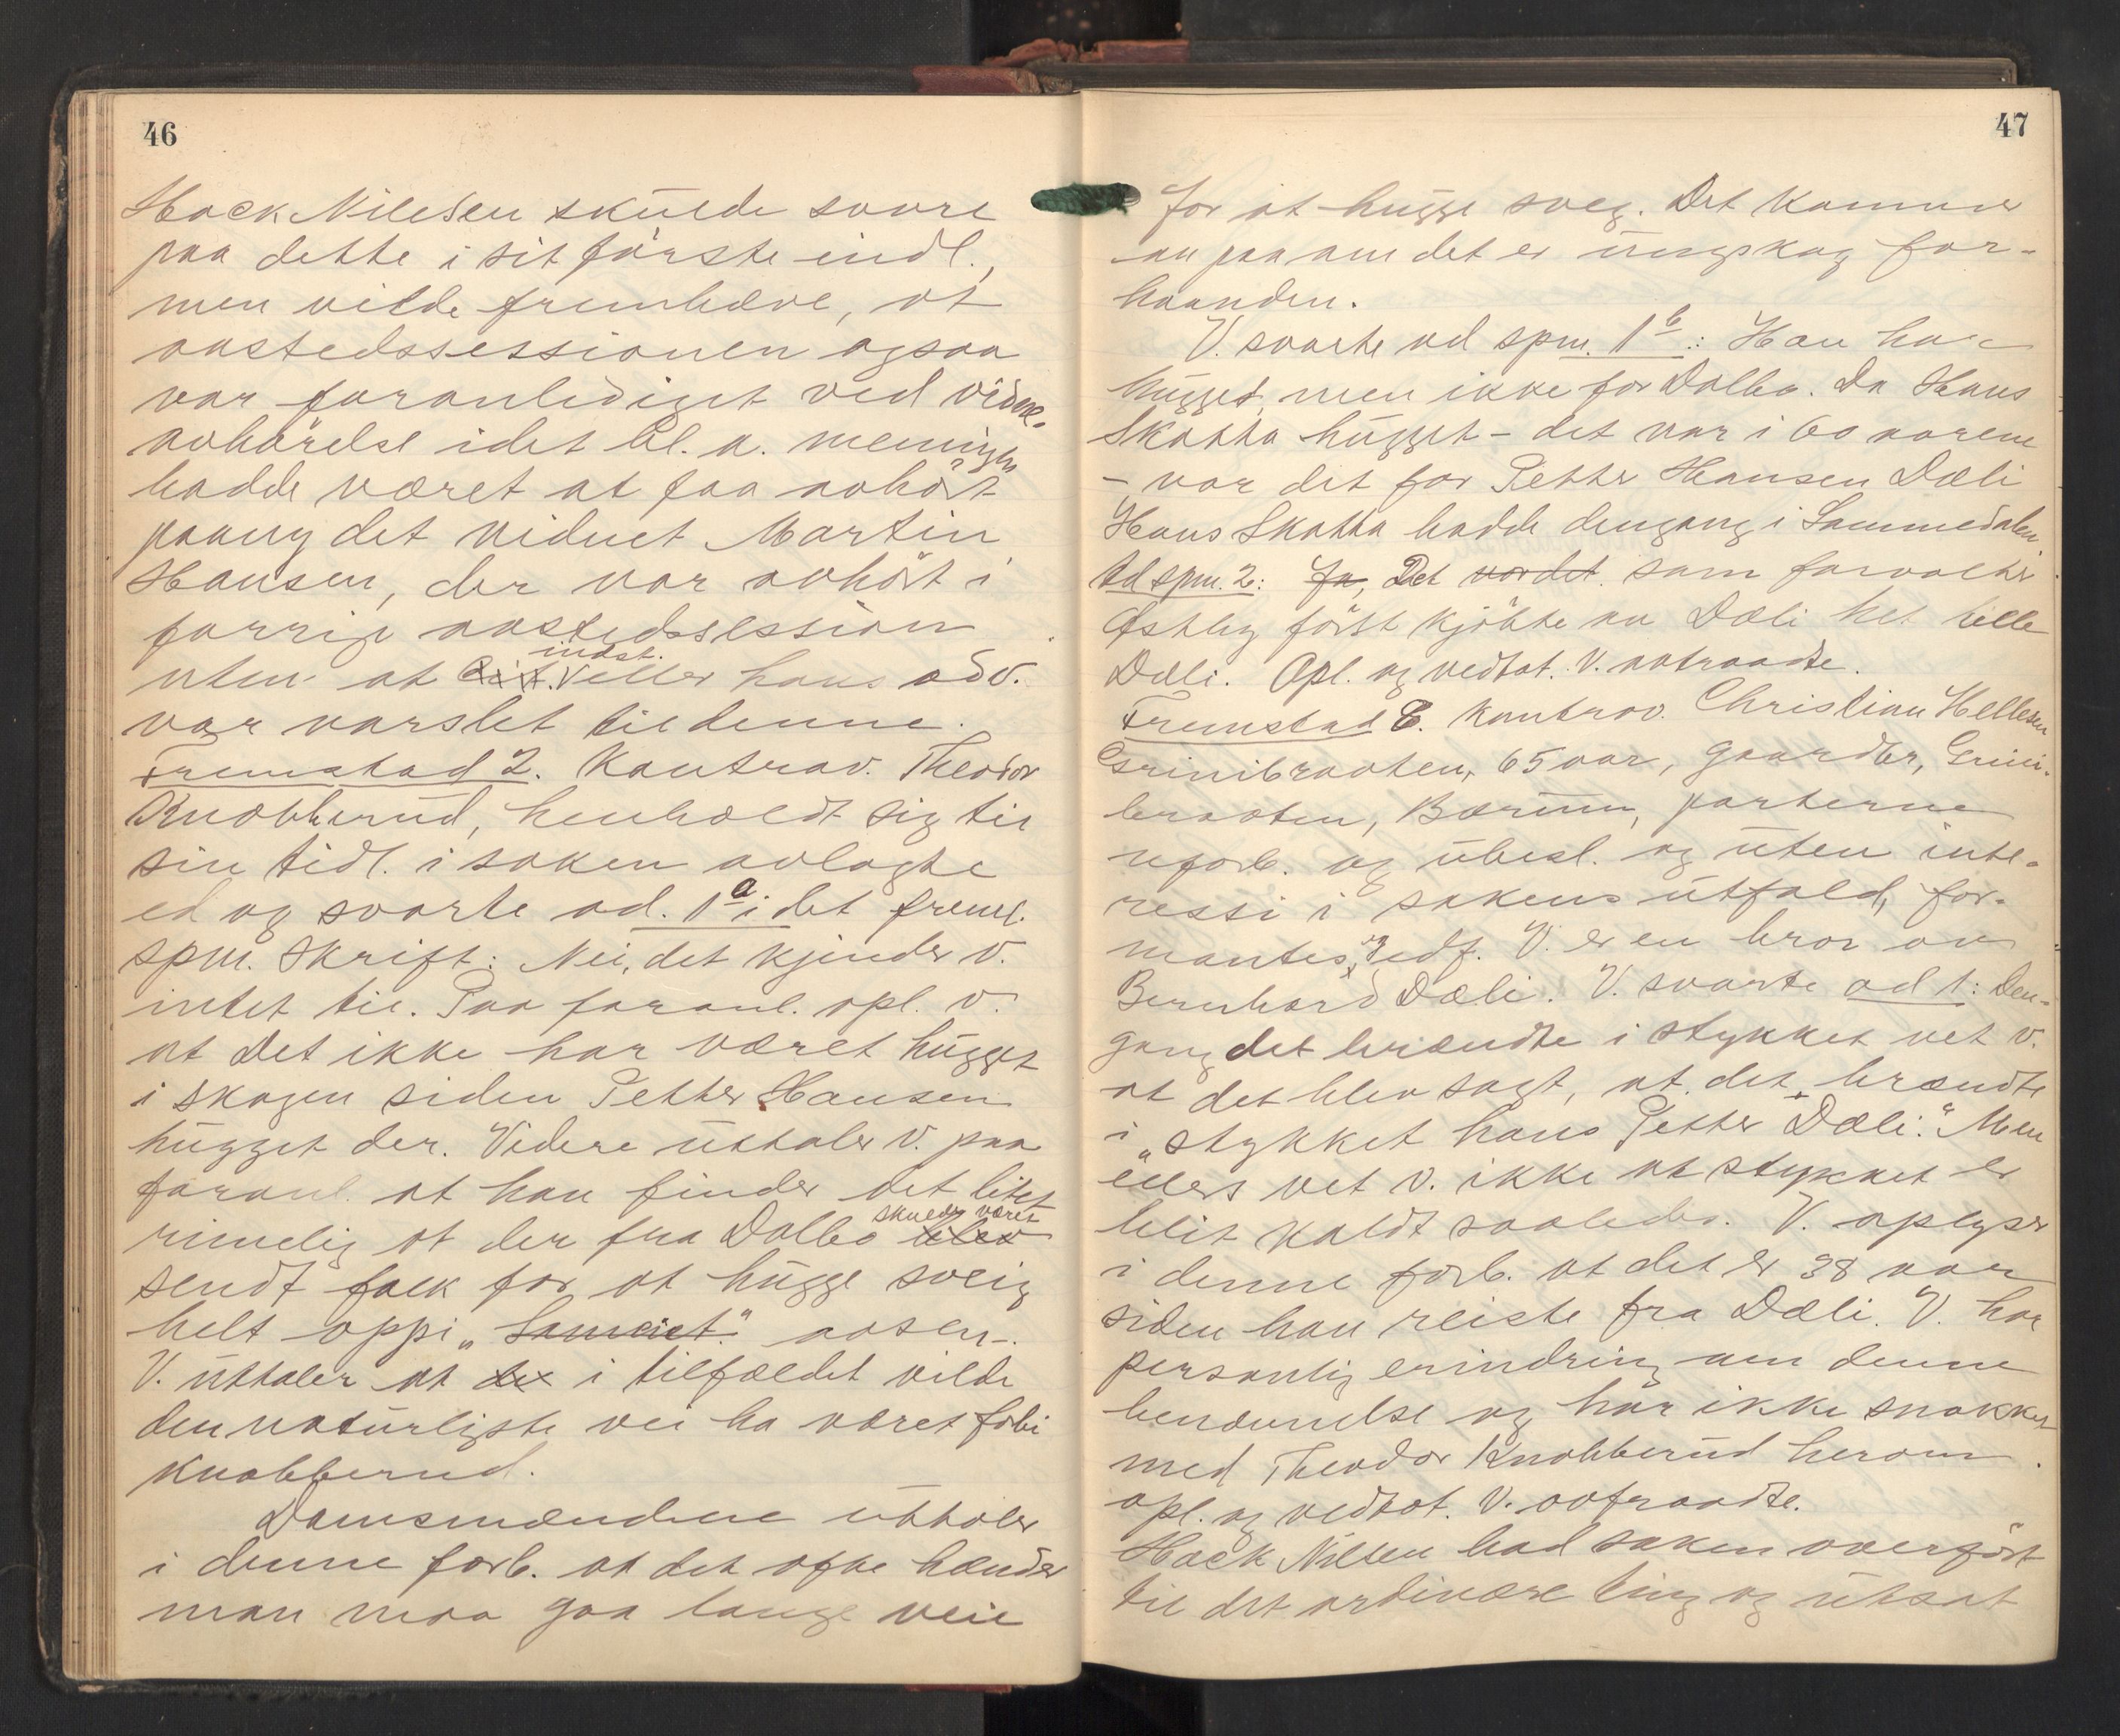 46
Hack Nilssen skulde svare
paa dette i sit første indl.,
men vilde fremhæve, at
aastedssessionen ogsaa
var foranlediget ved vidne-
avhørelse idet bl. a. meningen
hadde været at faa avhørt
paany det vidnet Martin
Hansen, der var avhørt i
forrige aastedssession
indst.
uten at Cit. eller hans adv.
var varslet til denne.
Fremstod 2. Kontrav. Theodor
Knabberud, henholdt sig til
sin tidl. i saken avlagte
ed og svarte ad. 1a i det freml.
spm. skrift: Nei, det kjender v.
intet til. Paa foranl. opl. v.
at det ikke har været hugget
i skogen siden Petter Hansen
hugget der. Videre uttaler v. paa
foranl. at han finder det litet
skulde været
rimelig at der fra Dalbo blev
sendt folk for at hugge sveig
helt oppi aasen.
V. uttaler at det i tilfældet vilde
den naturligste vei ha været forbi
Knabberud.
Domsmændene uttaler
i denne forb. at det ofte hænder
man maa gaa lange veie
47
for at hugge sveg. Det kommer
an paa om det er ungskog for-
haanden.
V. svarte ad spm. 1b: Han har
hugget, men ikke for Dalbo. Da Hans
Skatta hugget – det var i 60 aarene
– var det for Petter Hansen Dæli
Hans Skatta hadde dengang i Lommedalen
Ad spm. 2: Ja, Det var det som forvalter
Østby først kjøpte av Dæli het lille
Dæli. Opl. og vedtat. V. aatraadte.
Fremstod 8. Kontrav. Christian Hellesen
Grinibraaten, 65 aar, gaardbr, Grini-
braaten, Bærum, parterne
uforb. og ubesl. og uten inte-
resse i sakens utfald, for-
mantes, og edf. V. er en bror av
Bernhard Dæli. V. svarte ad 1: Den-
gang det brændte i stykket vet v.
at det blev sagt, at det brændte
i "stykket hans Petter Dæli." Men
ellers vet v. ikke at stykket er
blit kaldt saaledes. V. oplyser
i denne forb. at det er 38 aar
siden han reiste fra Dæli. V. har
personlig erindring om denne
benævnelse og har ikke snakket
med Theodor Knabberud herom.
opl. og vedtat. V. aatraadte.
Hack Nilsen bad saken overgit
til det ordinære ting og utsat